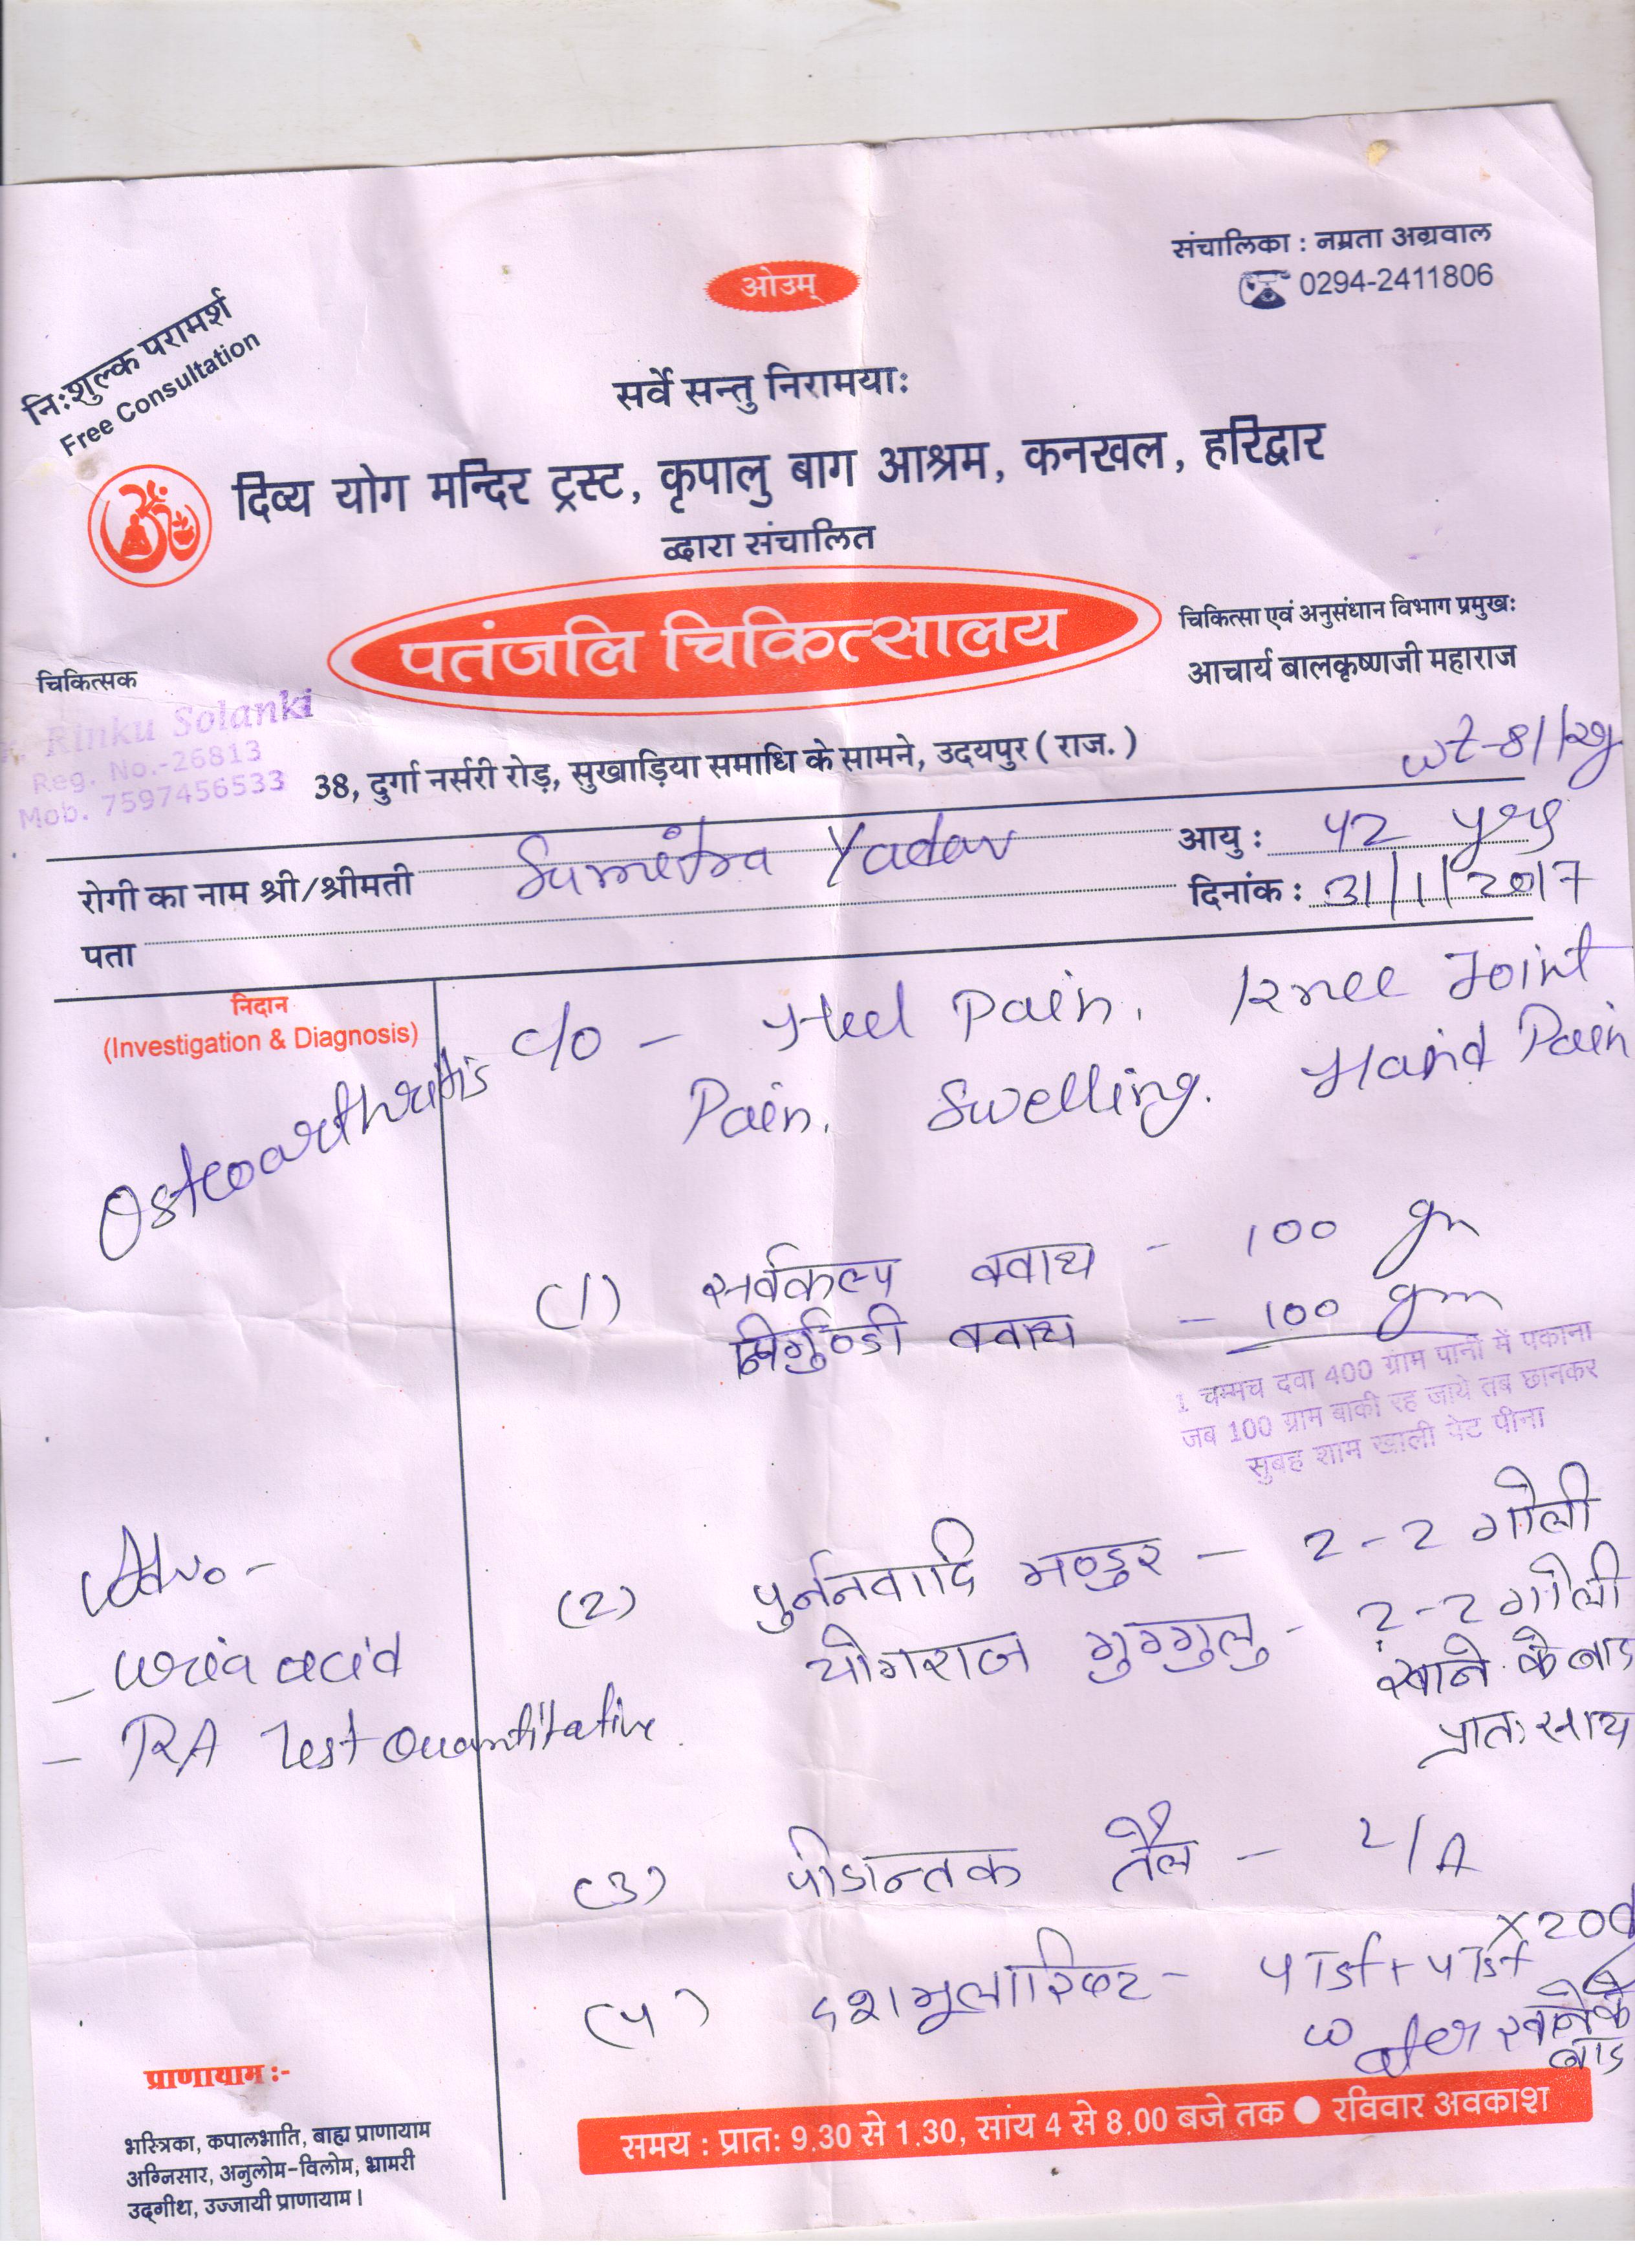 संचालिका : नम्रता अग्रवाल
0294-2411806
ओउम्
नि:शुल्क परामर्श
Free Consultation
सर्वे सन्तु निरामयाः
दिव्य योग मन्दिर ट्रस्ट, कृपालु बाग आश्रम, कनखल, हरिद्वार
द्वारा संचालित
पतंजलि चिकित्सालय
चिकित्सा एवं अनुसंधान विभाग प्रमुखः
आचार्य बालकृष्णजी महाराज
चिकित्सक
Rinku Solanki
Reg. No.-26813
Mob. 7597456533
38, दुर्गा नर्सरी रोड़, सुखाड़िया समाधि के सामने, उदयपुर ( राज. )
wt-81kg
रोगी का नाम श्री/श्रीमती Sumitra Yadav आयु : 42 yrs
पता दिनांक : 31/1/2017
निदान
(Investigation & Diagnosis)
Osteoarthritis
c/o - Heel Pain. Knee Joint
Pain. Swelling. Hand Pain
(1) सर्वकल्प क्वाथ - 100 gm
निर्गुण्डी क्वाथ - 100 gm
1 चम्मच दवा 400 ग्राम पानी में पकाना
जब 100 ग्राम बाकी रह जाये तब छानकर
सुबह शाम खाली पेट पीना
Adv. -
- Uric acid
- RA Test Quantitative
(2) पुर्ननवादि मण्डुर - 2-2 गोली
योगराज गुग्गुलु - 2-2 गोली
खाने के बाद
प्रातः साय
(3) पीडान्तक तैल - L/A
x 20d
(4) दशमूलारिष्ट - 4 ढ़ + 4 ढ़
water खाने के
बाद
प्राणायाम :-
भस्त्रिका, कपालभाति, बाह्य प्राणायाम
अग्निसार, अनुलोम-विलोम, भ्रामरी
उद्गीथ, उज्जायी प्राणायाम।
समय : प्रातः 9.30 से 1.30, सांय 4 से 8.00 बजे तक ● रविवार अवकाश